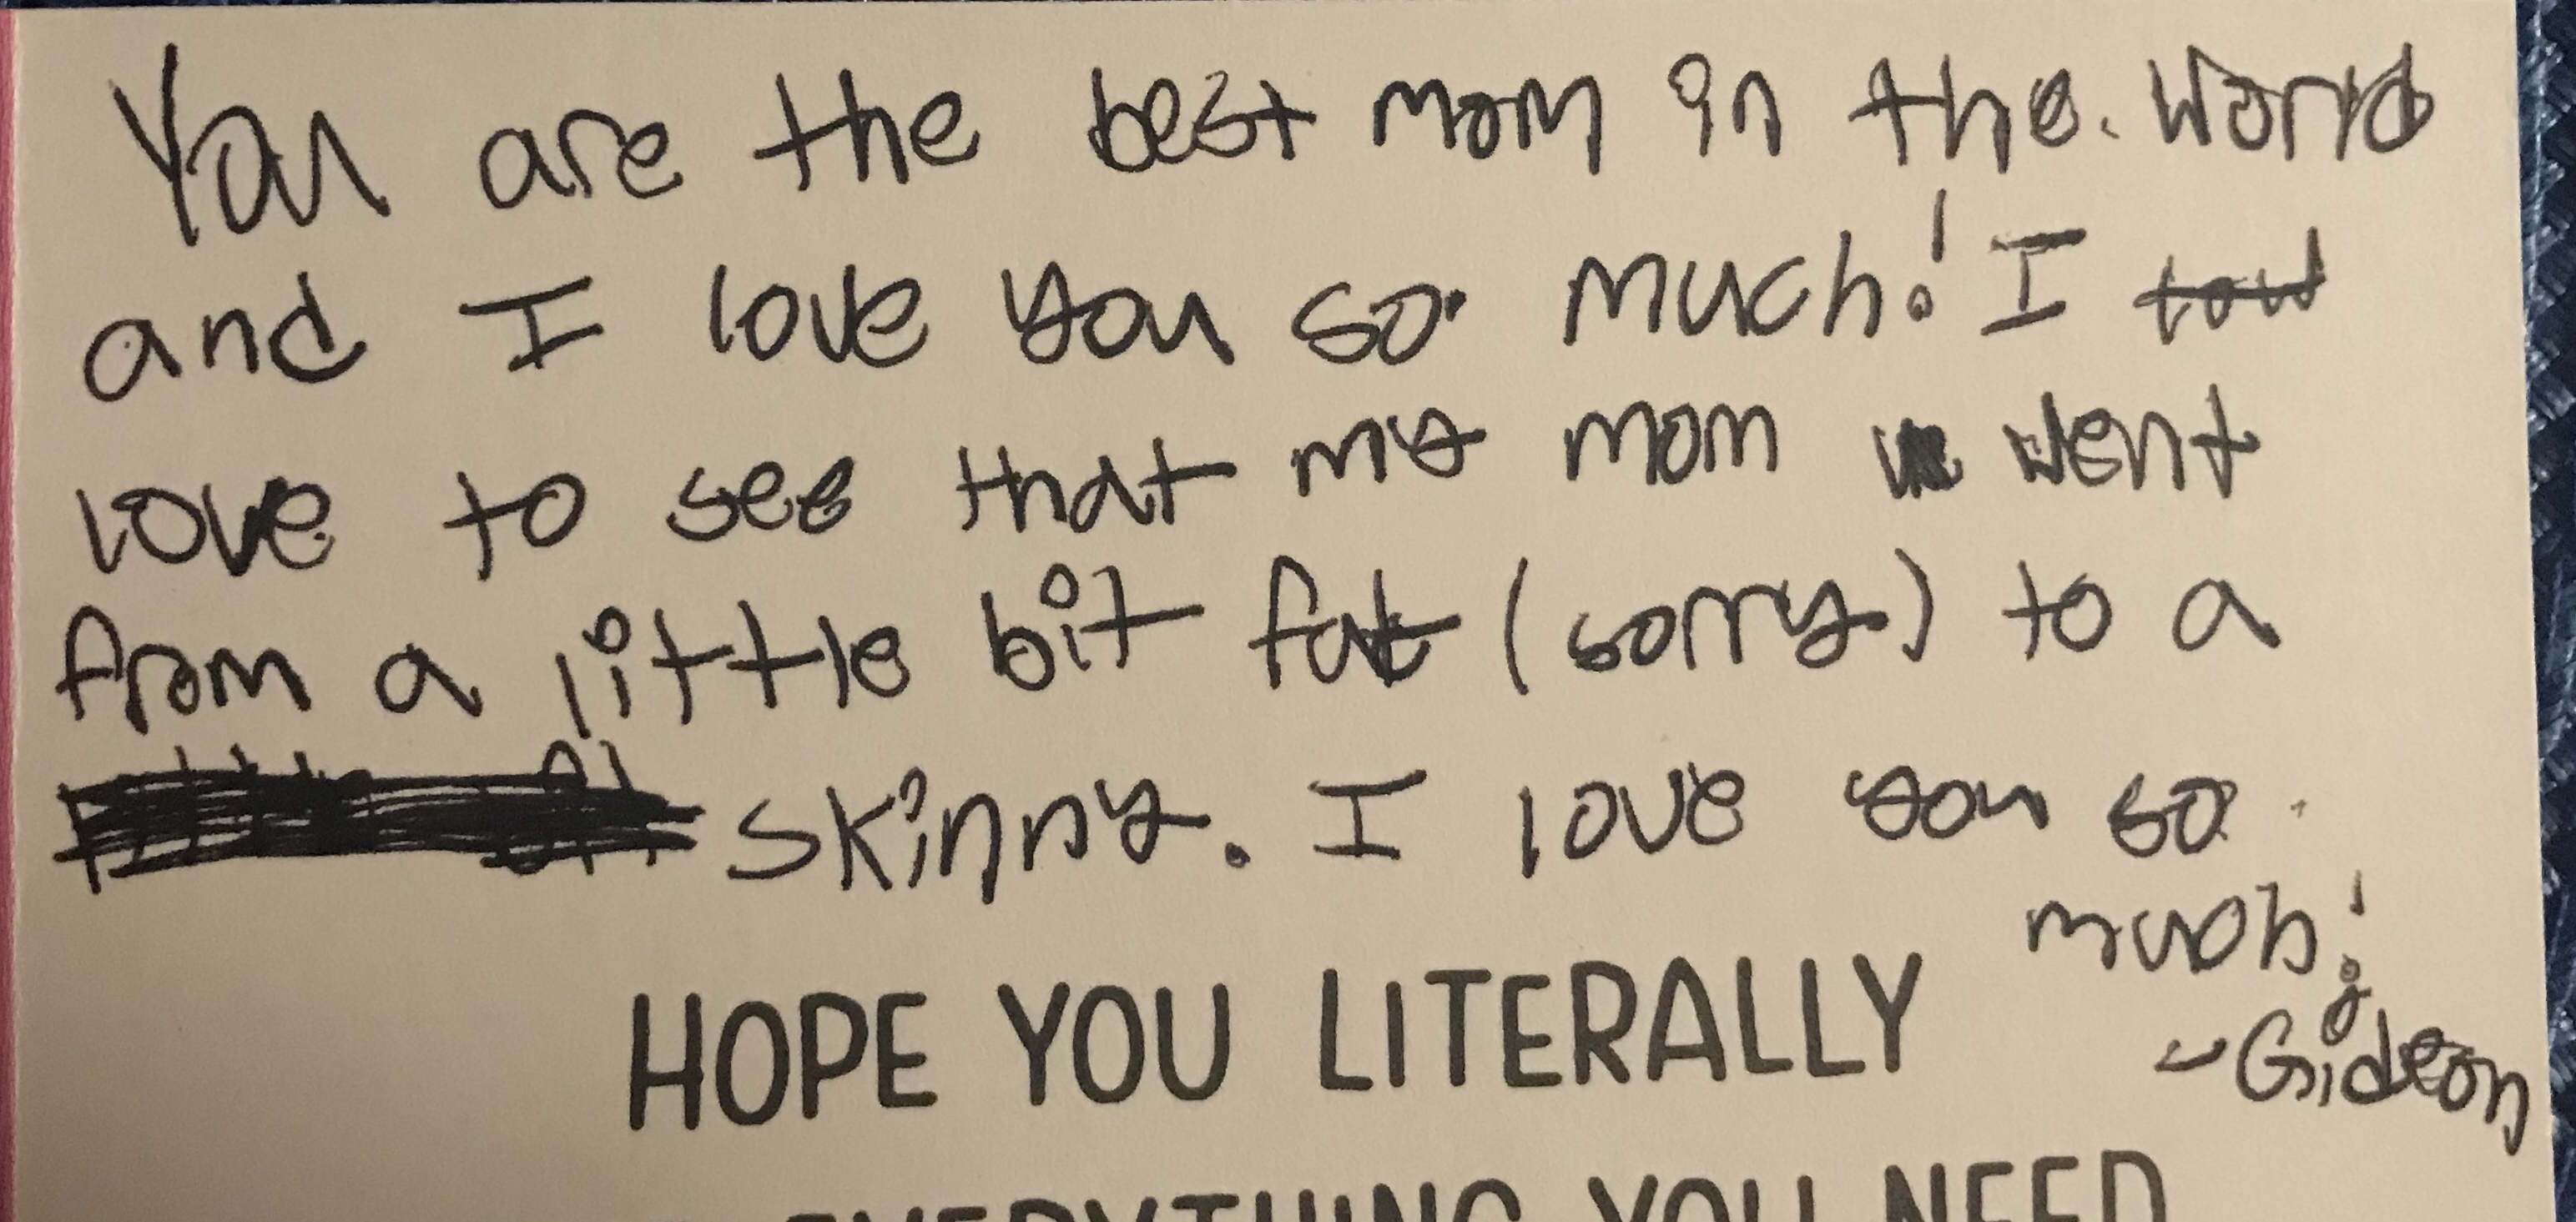 You are the best mom in the. World
and I love you so much! I
love to see that my mom went
from a little bit fat (sorry) to a
skinny. I love you so
much!
~Gideon
HOPE YOU LITERALLY
EVERYTHING YOU NEED